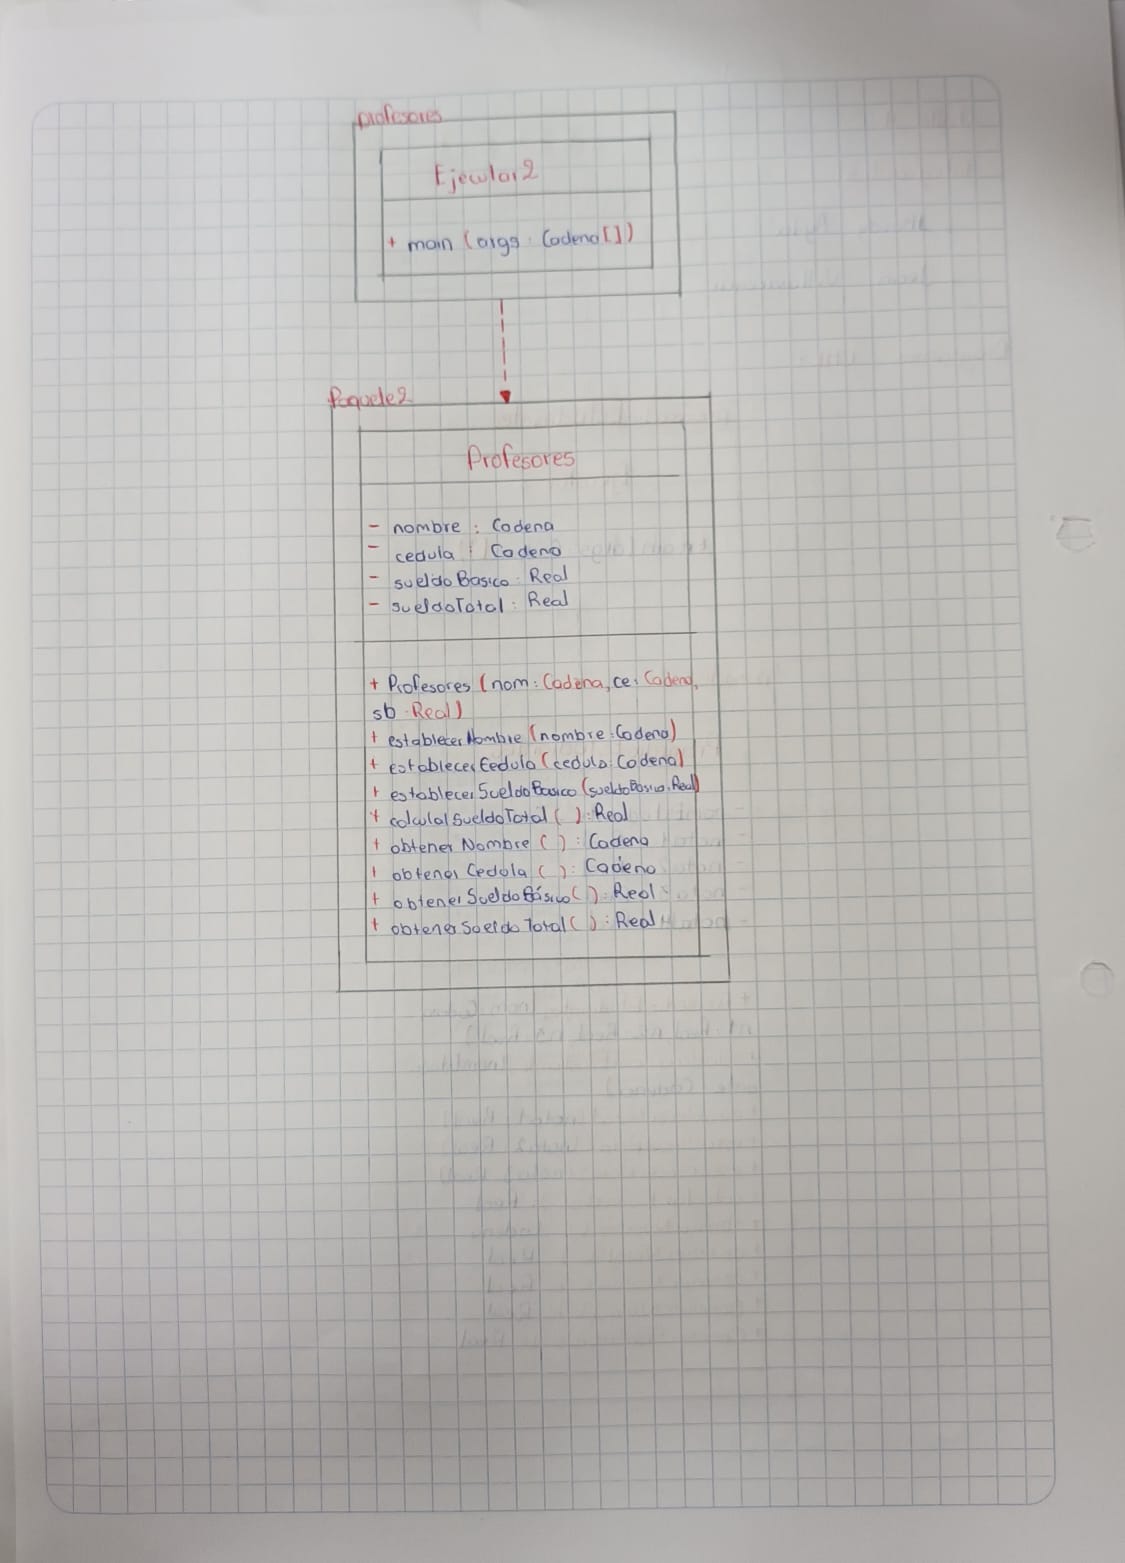 profesores
Ejecutar2
+ main (args : Cadena[])
Paquete2
Profesores
- nombre : Cadena
- cedula : Cadena
- sueldoBasico : Real
- sueldoTotal : Real
+ Profesores (nom : Cadena, ce : Cadena,
sb : Real)
+ establecerNombre (nombre : Cadena)
+ establecerCedula (cedula : Cadena)
+ establecerSueldoBasico (sueldoBasico : Real)
+ calcularSueldoTotal ( ) : Real
+ obtenerNombre ( ) : Cadena
+ obtenerCedula ( ) : Cadena
+ obtenerSueldoBásico ( ) : Real
+ obtenerSueldoTotal ( ) : Real